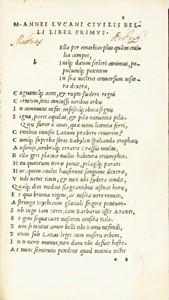 M. ANNEI LVCANI CIVILIS BEL
LI LIBER PRIMVS.
Ella per emathios plus quàm ciui
lia campos,
b I usq; datum sceleri canimus, po
pulumq; potentem
I n sua uictrici conuersum uisce
ra dextera,
C ognatasq; acies, & rupto fœdere regni
C ertatum totis concussi uiribus orbis
I n commune nefas, infestisq; obuia signis
S igna, pares aquilas, & pila minantia pilis.
Q uis furor ô ciues, quæ tanta licentia ferri
G entibus inuisis Latium præbere cruorem?
C unq; superba foret Babylon spolianda trophæis
A usoniis, umbraq; erraret Crassus inulta,
B ella geri placuit nullos habitura triumphos?
H eu quantum terræ potuit, pelagiq; parari
H oc, quem ciuiles hauserunt, sanguine dextræ,
V nde uenit Titan, & nox ubi sydera condit,
Q uaq; dies medius flagrantibus æstuat horis,
E t qua bruma rigens, ac nescia uere remitti,
A stringit Scythicum glaciali frigore pontum,
S ub iuga iam Seres, iam barbarus isset Araxes,
E t gens siqua iacet nascenti conscia Nilo.
T um si tantus amor belli tibi Roma nefandi,
T otum sub Latias leges cum miseris orbem,
I n te uerte manus, non dum tibi defuit hostis.
A t nunc semirutis pendent quod mœnia tectis